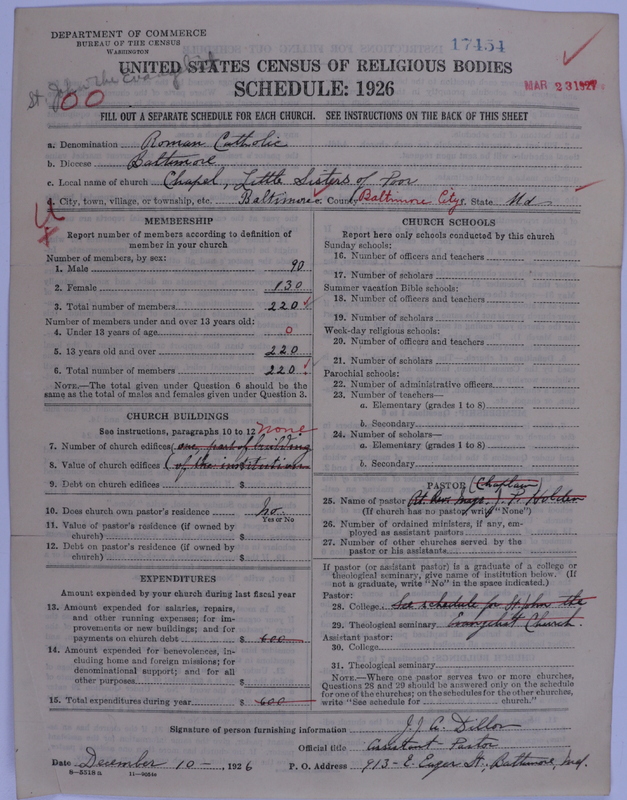 DEPARTMENT OF COMMERCE
BUREAU OF THE CENSUS
WASHINGTON
17454
St. John the Evangelist
00
UNITED STATES CENSUS OF RELIGIOUS BODIES
SCHEDULE: 1926
MAR 23 1927
FILL OUT A SEPARATE SCHEDULE FOR EACH CHURCH. SEE INSTRUCTIONS ON THE BACK OF THIS SHEET
a. Denomination Roman Catholic
b. Diocese Baltimore
c. Local name of church Chapel, Little Sisters of Poor
d. City, town, village, or township, etc. Baltimore e. County Baltimore City f. State Md
MEMBERSHIP
Report number of members according to definition of
member in your church
Number of members, by sex:
1. Male 90
2. Female 130
3. Total number of members 220
Number of members under and over 13 years old:
4. Under 13 years of age 0
5. 13 years old and over 220
6. Total number of members 220
NOTE.—The total given under Question 6 should be the
same as the total of males and females given under Question 3.
CHURCH BUILDINGS
See instructions, paragraphs 10 to 12 none
7. Number of church edifices (one, part of building
8. Value of church edifices (of the institution
9. Debt on church edifices $
10. Does church own pastor's residence No.
Yes or No
11. Value of pastor's residence (if owned by
church) $
12. Debt on pastor's residence (if owned by
church) $
EXPENDITURES
Amount expended by your church during last fiscal year
13. Amount expended for salaries, repairs,
and other running expenses; for im-
provements or new buildings; and for
payments on church debt $ 600
14. Amount expended for benevolences, in-
cluding home and foreign missions; for
denominational support; and for all
other purposes $
15. Total expenditures during year $ 600
CHURCH SCHOOLS
Report here only schools conducted by this church
Sunday schools:
16. Number of officers and teachers
17. Number of scholars
Summer vacation Bible schools:
18. Number of officers and teachers
19. Number of scholars
Week-day religious schools:
20. Number of officers and teachers
21. Number of scholars
Parochial schools:
22. Number of administrative officers
23. Number of teachers—
a. Elementary (grades 1 to 8)
b. Secondary
24. Number of scholars—
a. Elementary (grades 1 to 8)
b. Secondary
PASTOR (Chaplain)
25. Name of pastor Rt. Rev. Msgr. J. P. Holden
(If church has no pastor, write "None")
26. Number of ordained ministers, if any, em-
ployed as assistant pastors
27. Number of other churches served by the
pastor or his assistants
If pastor (or assistant pastor) is a graduate of a college or
theological seminary, give name of institution below. (If
not a graduate, write "No" in the space indicated.)
Pastor:
28. College See schedule for St John the
29. Theological seminary Evangelist Church.
Assistant pastor:
30. College
31. Theological seminary
NOTE.—Where one pastor serves two or more churches,
Questions 28 and 29 should be answered only on the schedule
for one of the churches; on the schedules for the other churches,
write "See schedule for church."
Signature of person furnishing information J. J. A. Dillon
Official title Assistant Pastor
Date December 10 , 1926 P. O. Address 913 - E. Eager St., Baltimore, Md.
8—5518a 11—9024a